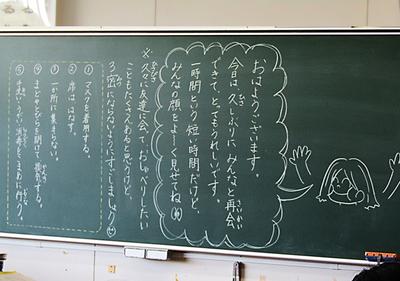 おはようございます。
今日は久しぶりにみんなと再会
さいかい
できて、とってもうれしいです。
一時間という短い時間だけど、
みんなの顔をよーく見せてね
※久々に友達に会って、おしゃべりしたい
こともたくさんあると思うけど、
3密にならないようにすごしましょう
①マスクを着用する。
②席ははなす。
③一か所に集まらない。
④まどやとびらを開けて換気する。
かんき
⑤手洗い、うがい、消毒をこまめに行う。